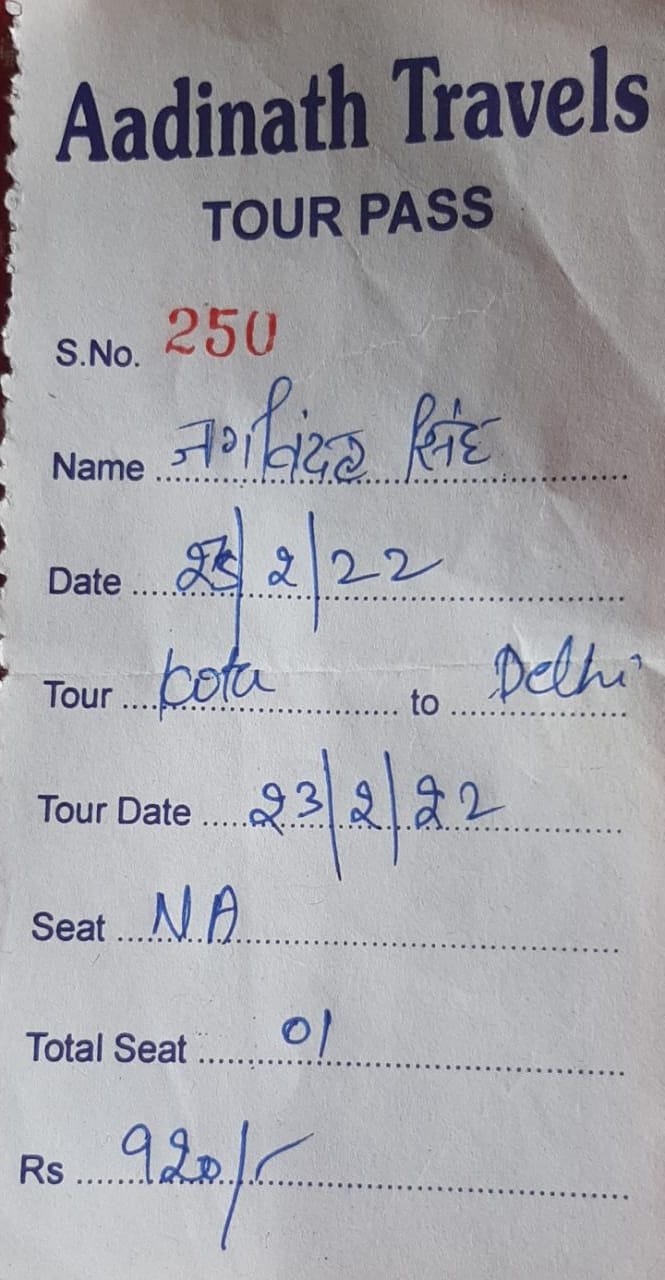 Aadinath Travels
TOUR PASS
S.No. 250
Name सिंह
Date 23/2/22
Tour Kota to Delhi
Tour Date 23/2/22
Seat NA
Total Seat 01
Rs 920/-